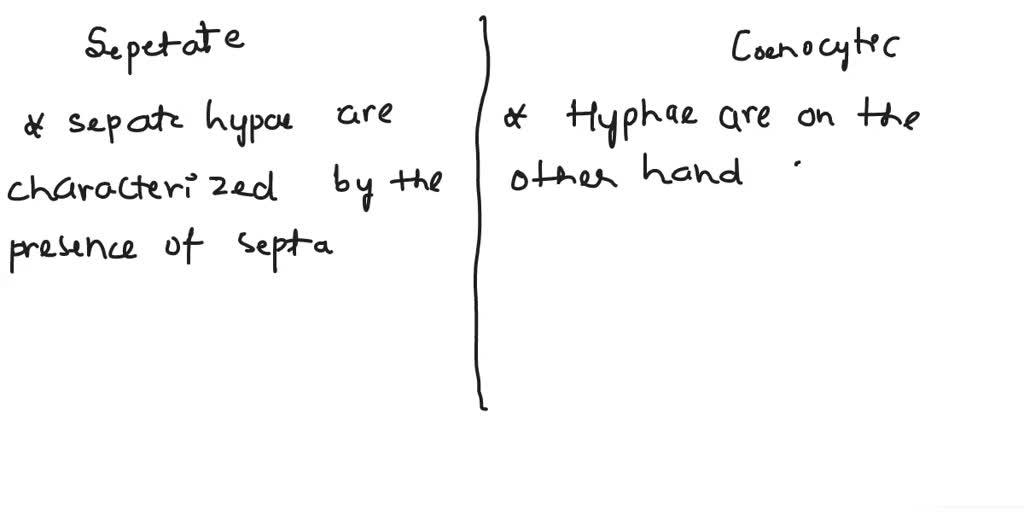 Sepetate
* sepate hypae are
characterized by the
presence of septa
Coenocytic
* Hyphae are on the
other hand